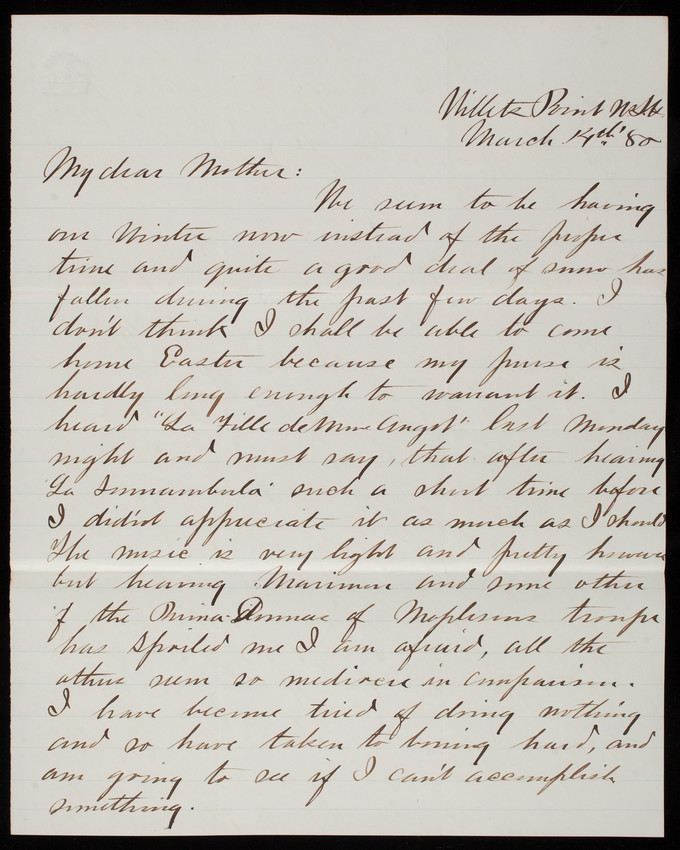 Willets Point N.Y.
March 14th '80
My dear Mother:
We seem to be having
our Winter now instead of the proper
time and quite a good deal of snow has
fallen during the past few days. I
don't think I shall be able to come
home Easter because my purse is
hardly long enough to warrant it. I
heard "La Fille de Mme Angot" last Monday
night and must say, that after hearing
"La Sonnambula" such a short time before
I did'nt appreciate it as much as I should
The music is very light and pretty however
but hearing Marimon and some other
of the Prima-Donnae of Maplesons troupe
has spoiled me I am afraid, all the
others seem so mediocre in comparison.
I have become tired of doing nothing
and so have taken to boning hard, and
am going to see if I can't accomplish
something.